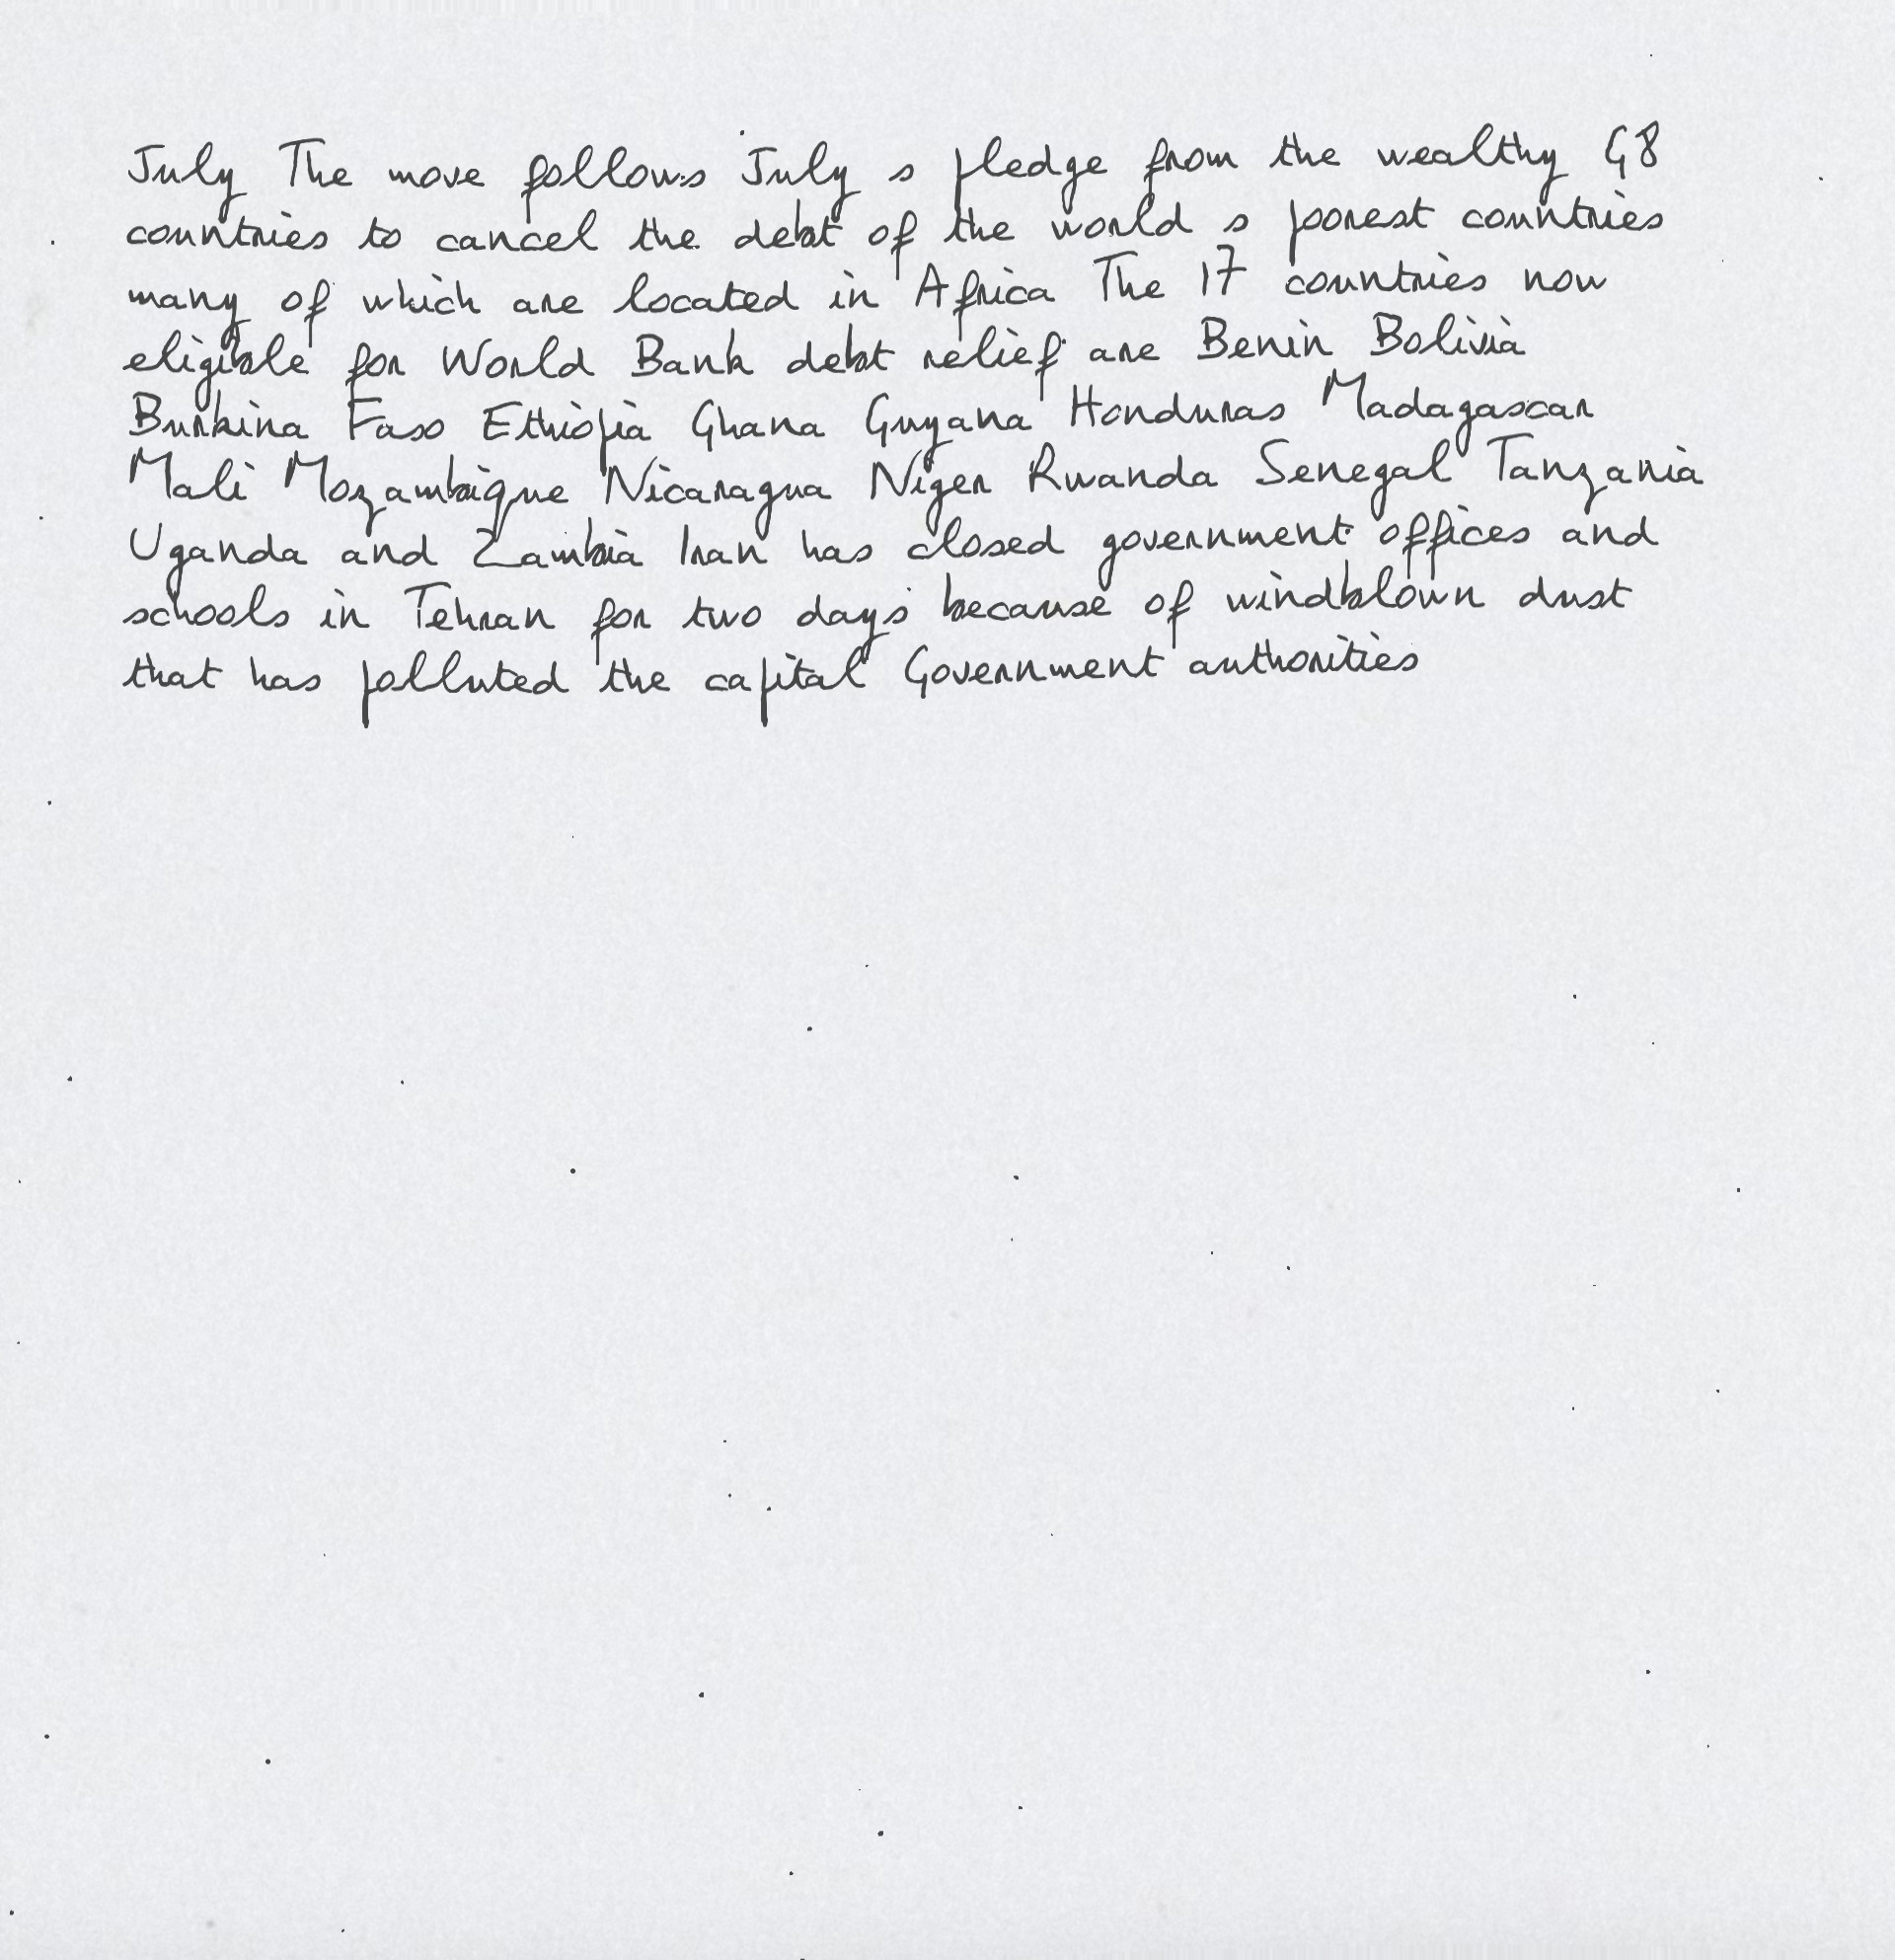 July The move follows July s pledge from the wealthy G8
countries to cancel the debt of the world s poorest countries
many of which are located in Africa The 17 countries now
eligible for World Bank debt relief are Benin Bolivia
Burkina Faso Ethiopia Ghana Guyana Honduras Madagascar
Mali Mozambique Nicaragua Niger Rwanda Senegal Tanzania
Uganda and Zambia Iran has closed government offices and
schools in Tehran for two days because of windblown dust
that has polluted the capital Government authorities